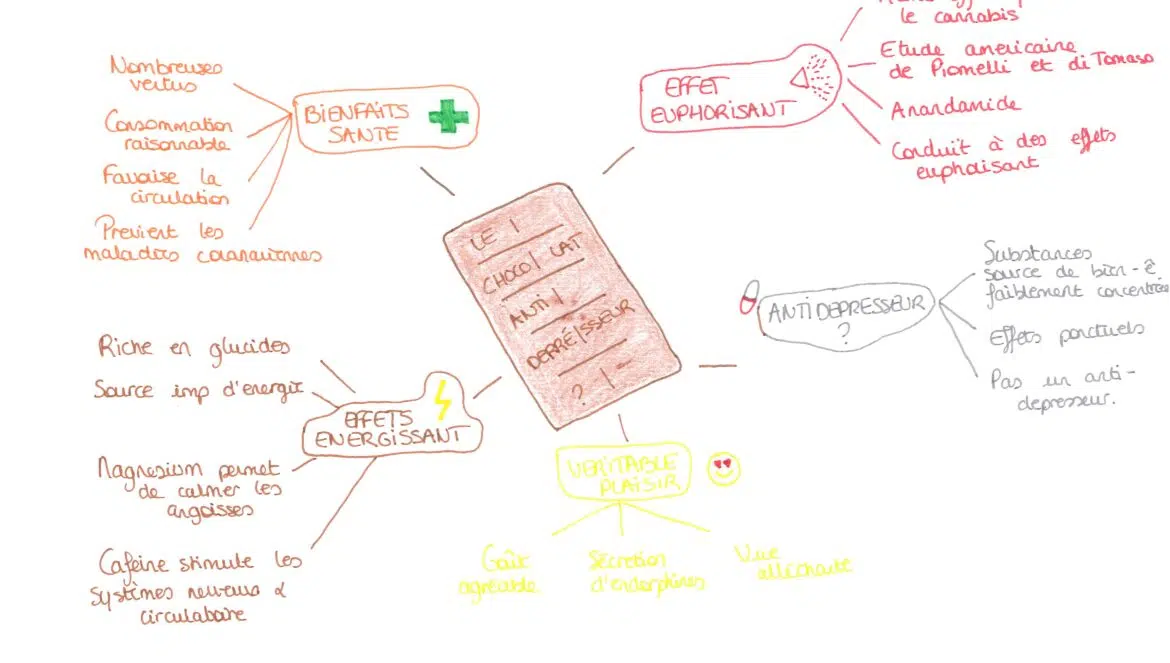 LE
CHOCOLAT
ANTI
DEPRESSEUR
?
BIENFAITS
SANTE
Nombreuses
vertus
Consommation
raisonnable
Favorise la
circulation
Previent les
maladies coronariennes
EFFET
EUPHORISANT
le cannabis
Etude américaine
de Piomelli et di Tomaso
Anandamide
Conduit à des effets
euphorisant
ANTIDEPRESSEUR
?
Substances
source de bien-ê
faiblement concentrées
Effets ponctuels
Pas un anti-
depresseur.
VERITABLE
PLAISIR
Goût
agréable
Sécretion
d'endorphines
Vue
alléchante
EFFETS
ENERGISSANT
Riche en glucides
Source imp d'energie
Magnesium permet
de calmer les
angoisses
Cafeine stimule les
systèmes nerveux &
circulatoire